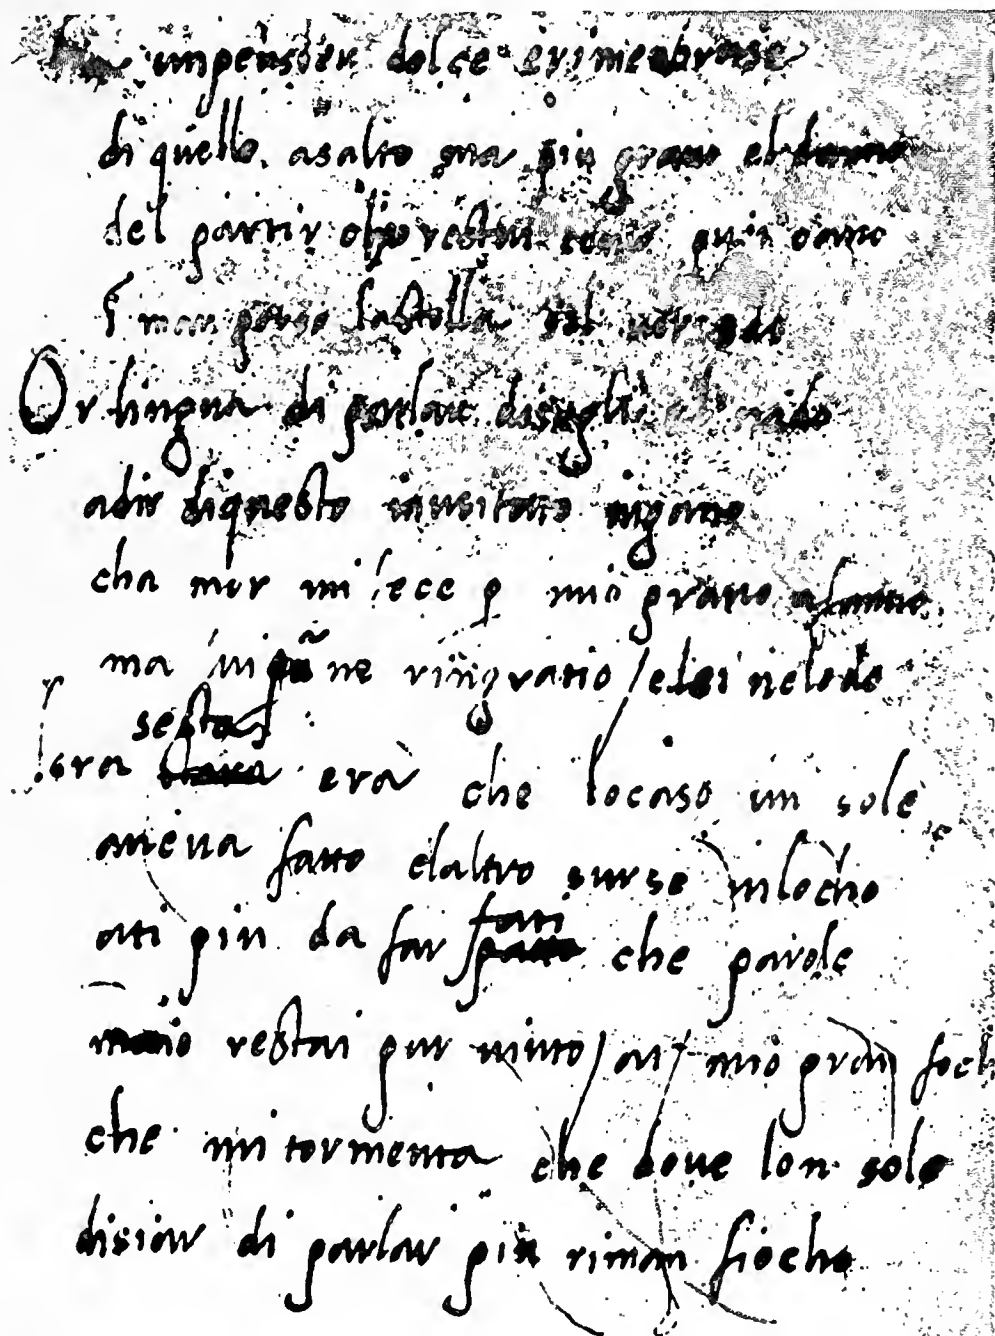 un pensier dolce e rimenbrase
di quello asalto ma piu grave el danno
del partir ch io restai como quei c ano
in mar perso la stella
Or lingua di parlar disogli el nodo
a dir di questo inusitato ingano
cha mor mi fece p mio gravo afanno
ma lui pũ ne ringratio / e lei ne lodo
sesta
lora era che locaso un sole
aueva fatto e laltro surse in locho
ati piu da far fati che parole
io restai pur uinto / al / mio gran foch
che mi tormenta che doue lon sole
disiar di parlar piu riman fiocho